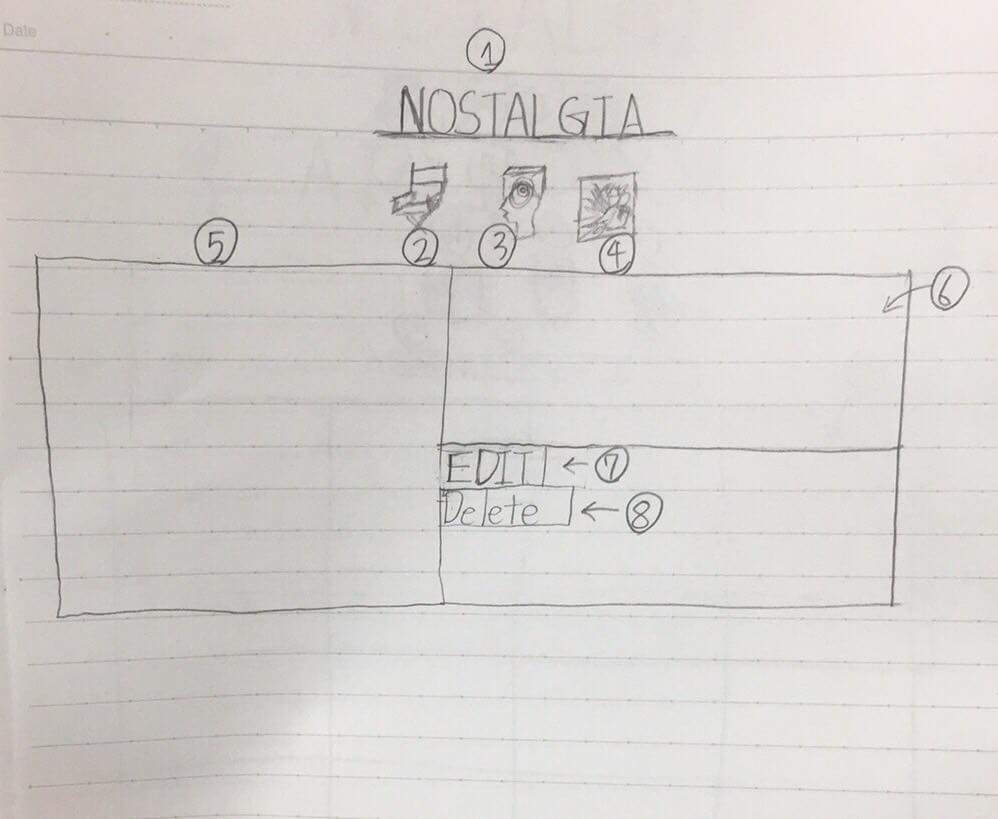 Date
①
NOSTALGIA
⑤ ② ③ ④
⑥
EDIT ← ⑦
Delete ← ⑧